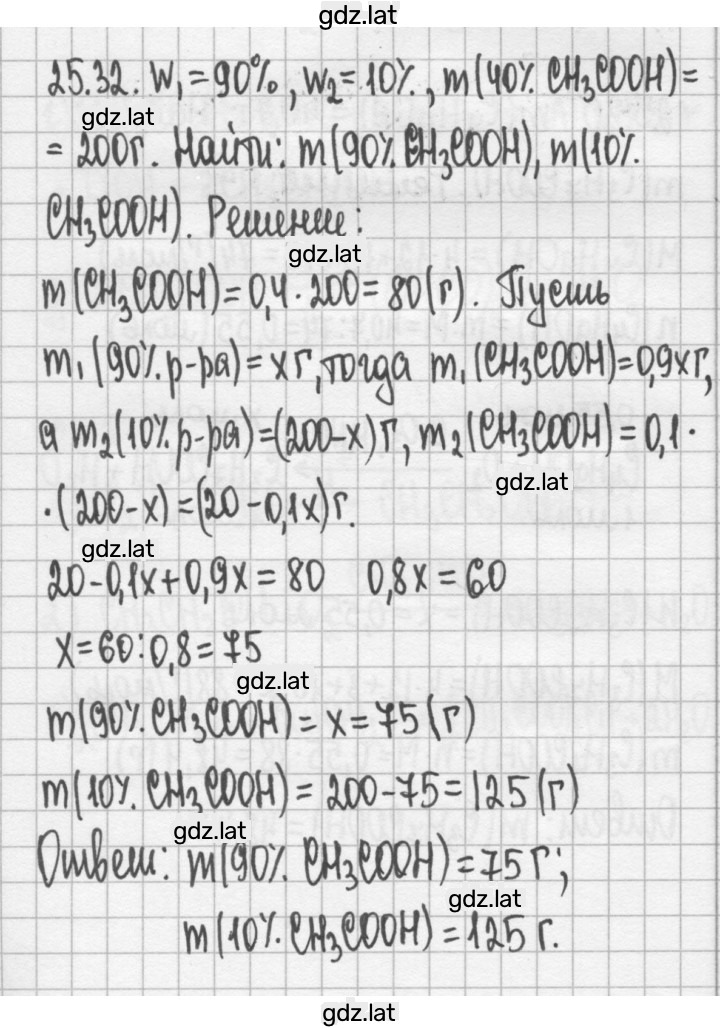 gdz.lat
25.32. W₁ = 90%, W₂ = 10%, m(40% CH₃COOH) =
gdz.lat
= 200г. Найти: m(90% CH₃COOH), m(10%
CH₃COOH). Решение:
gdz.lat
m(CH₃COOH) = 0,4 · 200 = 80(г). Пусть
m₁(90% р-ра) = x г, тогда m₁(CH₃COOH) = 0,9x г,
а m₂(10% р-ра) = (200-x) г, m₂(CH₃COOH) = 0,1 ·
gdz.lat
· (200-x) = (20-0,1x) г.
gdz.lat
20-0,1x+0,9x = 80 0,8x = 60
x = 60:0,8 = 75
gdz.lat
m(90% CH₃COOH) = x = 75(г)
m(10% CH₃COOH) = 200-75 = 125(г)
gdz.lat
Ответ: m(90% CH₃COOH) = 75 г;
gdz.lat
m(10% CH₃COOH) = 125 г.
gdz.lat